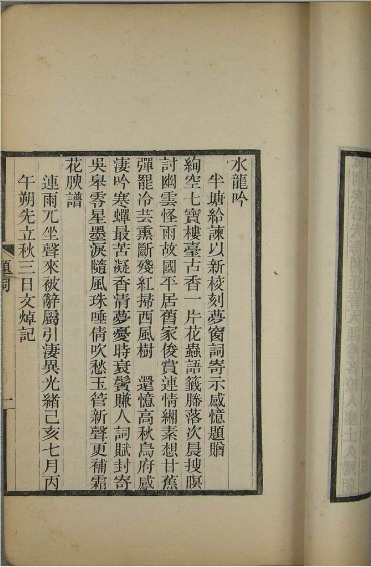 水龍吟
半塘給諫以新校刻夢窗詞寄示感憶題贈
絢空七寶樓臺古香一片花蟲語籤縢落次晨搜暝
討幽雲怪雨故國平居舊家俊賞連情緗素想甘蕉
彈罷冷芸熏斷殘紅掃西風樹　還憶高秋烏府感
淒吟寒蟬最苦凝香清夢憂時衰鬢賺人詞賦封寄
吳皋零星墨淚隨風珠唾倩吹愁玉管新聲更補霜
花腴譜
連雨兀坐聲來被辭屬引淒異光緒己亥七月丙
午朔先立秋三日文焯記
題詞
一